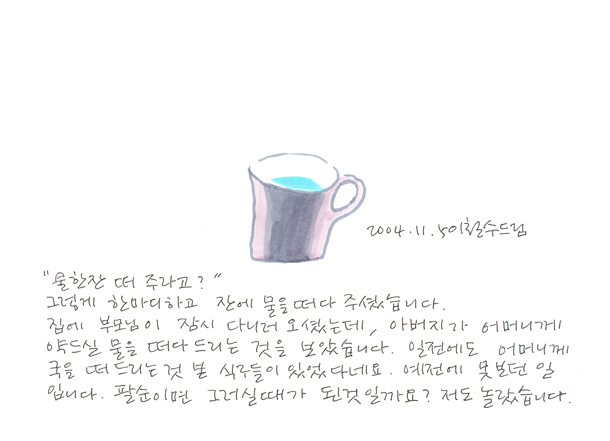 2004.11.5 이철수드림
"물한잔 떠 주라고?"
그렇게 한마디하고 잔에 물을 떠다 주셨습니다.
집에 부모님이 잠시 다니러 오셨는데, 아버지가 어머니께
약드실 물을 떠다 드리는 것을 보았습니다. 일전에도 어머니께
국을 떠 드리는 것 본 식구들이 있었다네요. 예전에 못보던 일
입니다. 팔순이면 그러실때가 된것일까요? 저도 놀랐습니다.